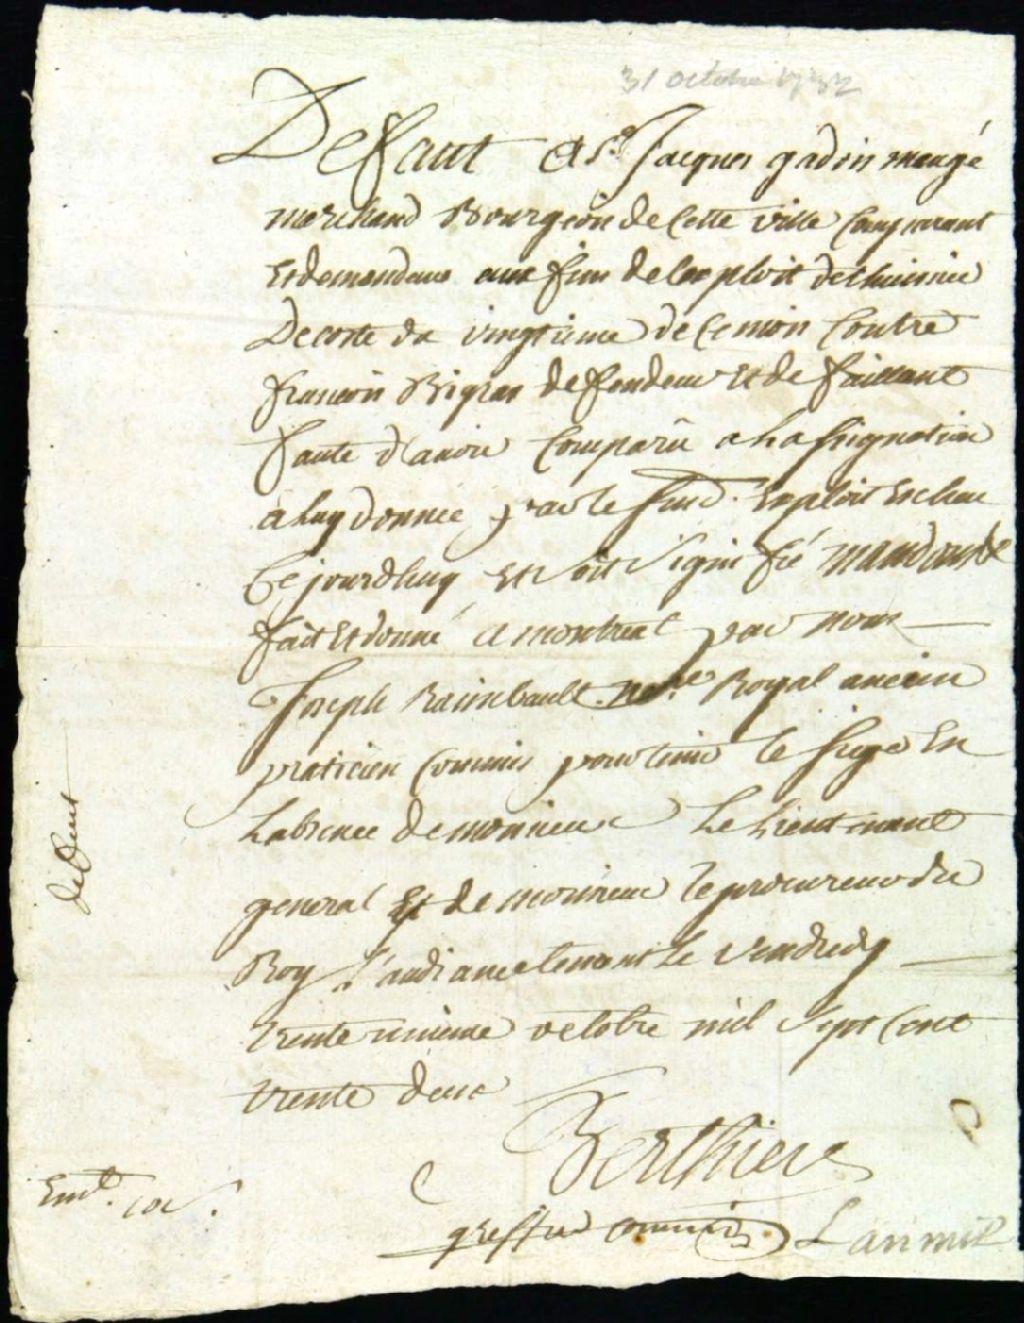 31 octobre 1732
Deffaut a Sr. Jacques gadois maugé
marchand Bourgeois de Cette ville Comparant
Et demandeur aux fins de lexploit de lhuissier
Decoste du vingtieme de Ce mois Contre
francois Bigras deffendeur Et deffaillant
faute d'avoir Comparu a Lassignation
a Luy donnée par le susd. Exploit Escheu
Ce jourdhuy Et soit signiffié mandons &c
fait Et donné a montreal par nous
Joseph Raimbault nore Royal ancien
praticien Commis pour tenir le siege En
Labsence de monsieur Le Lieutenant
general Et de monsieur le procureur du
Roy L'audiance tenant Le Vendredy
trente unieme octobre mil sept Cent
trente deux
Berthier
greffier commis
Lan mil